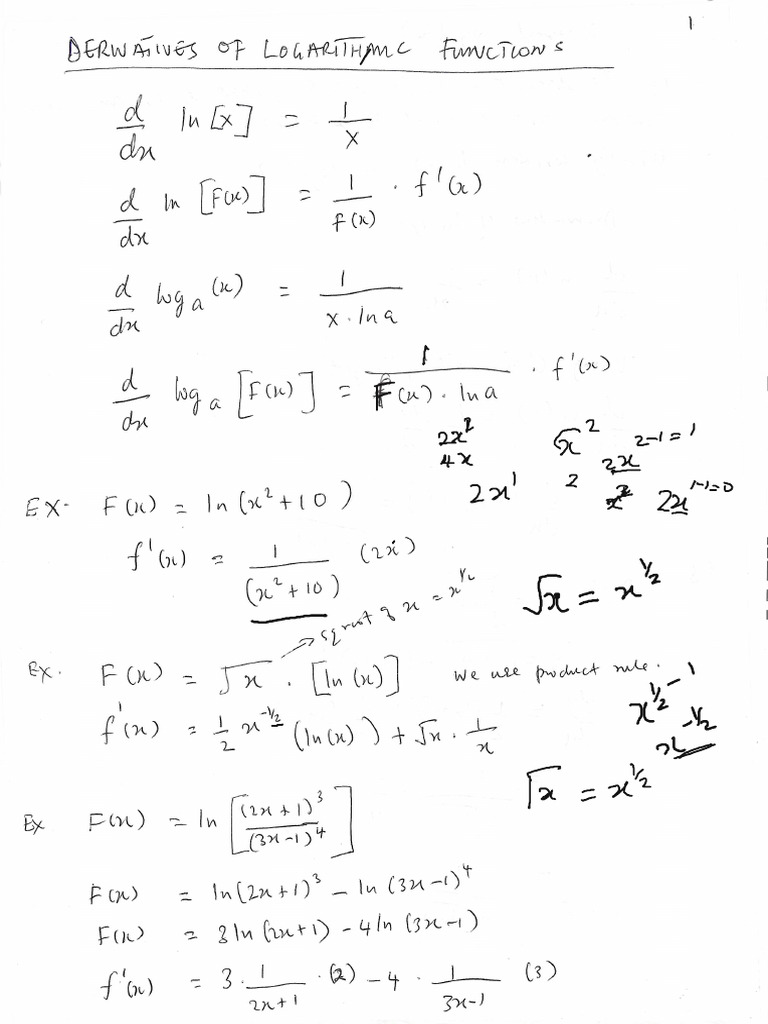 1
DERIVATIVES OF LOGARITHMIC FUNCTIONS
d/dx ln [x] = 1/x
d/dx ln [F(x)] = 1/f(x) · f'(x)
d/dx log a (x) = 1/(x · ln a)
d/dx log a [F(x)] = 1/(F(x) · ln a) · f'(x)
2x²
4x
2x¹
x²
2
2-1=1
2x
2x 1-1=0
EX- F(x) = ln (x² + 10)
f'(x) = 1/(x² + 10) (2x)
√x = x^½
→ sqroot of x = x^½
Ex. F(x) = √x · [ln (x)] we use product rule.
f'(x) = ½ x^-½ (ln(x)) + √x · 1/x
x^½ - 1
x^-½
√x = x^½
Ex F(x) = ln [(2x + 1)³/(3x - 1)⁴]
F(x) = ln(2x+1)³ - ln (3x-1)⁴
F(x) = 3 ln (2x+1) - 4 ln (3x-1)
f'(x) = 3 · 1/2x+1 · (2) - 4 · 1/3x-1 (3)